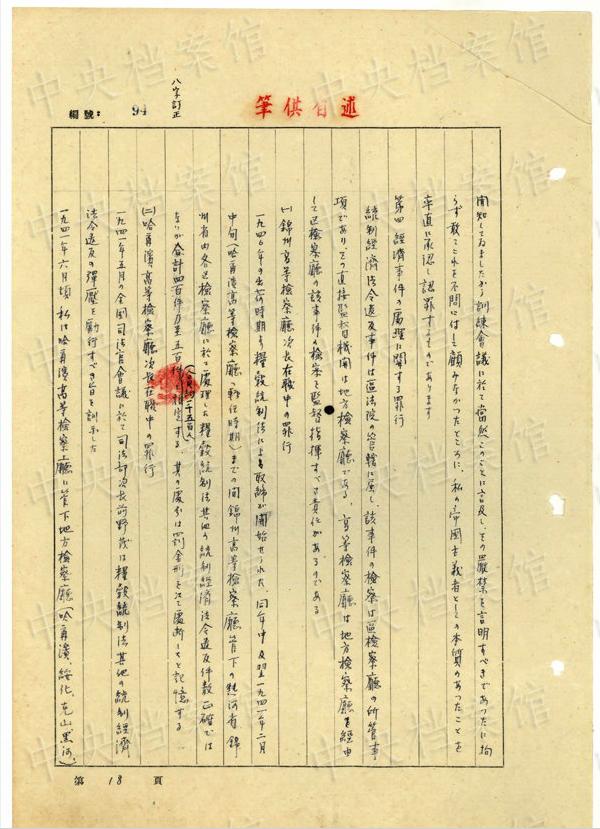 述自供筆
編號: 94
八字訂正
関知してゐましたから訓練会議に於て當然このことに言及し、その嚴禁を言明すべきであつたに拘
らず敢てこれを不問に付して顧みなかつたところに、私の帝國主義者としての本質のあつたことを
率直に承認し認罪するものであります
第四 経済事件の處理に関する罪行
統制経済法令違反事件は區法院の管轄に属し、該事件の検察は區検察廳の所管事
項であり、その直接監督機関は地方検察廳である、高等検察廳は地方検察廳を経由
して区検察廳の該事件の検察を監督指揮すべき責任があるのである
(一) 錦州高等検察廳次長在職中の罪行
一九四〇年の出荷時期より糧穀統制法による取締が開始せられた、同年中及翌一九四一年二月
中旬(哈爾濱高等検察廳へ転任時期)までの間錦州高等検察廳管下の熱河省錦
州省内各区検察廳に於て處理した糧穀統制法其他の統制経済法令違反件数正確では
ないが合計四百件乃至五百件(人員約二千五百人)と推定する、其の處分は罰金刑を以て處断したと記憶する
(二) 哈爾濱高等検察廳次長在職中の罪行
一九四一年五月の全國司法官会議に於て司法部次長前野茂は糧穀統制法其他の統制経済
法令違反の彈壓を勵行すべき旨を訓示した
一九四一年六月頃 私は哈爾濱高等検察廳に管下地方検察廳(哈爾濱、綏化、克山、黑河、
第 18 頁
中央档案馆